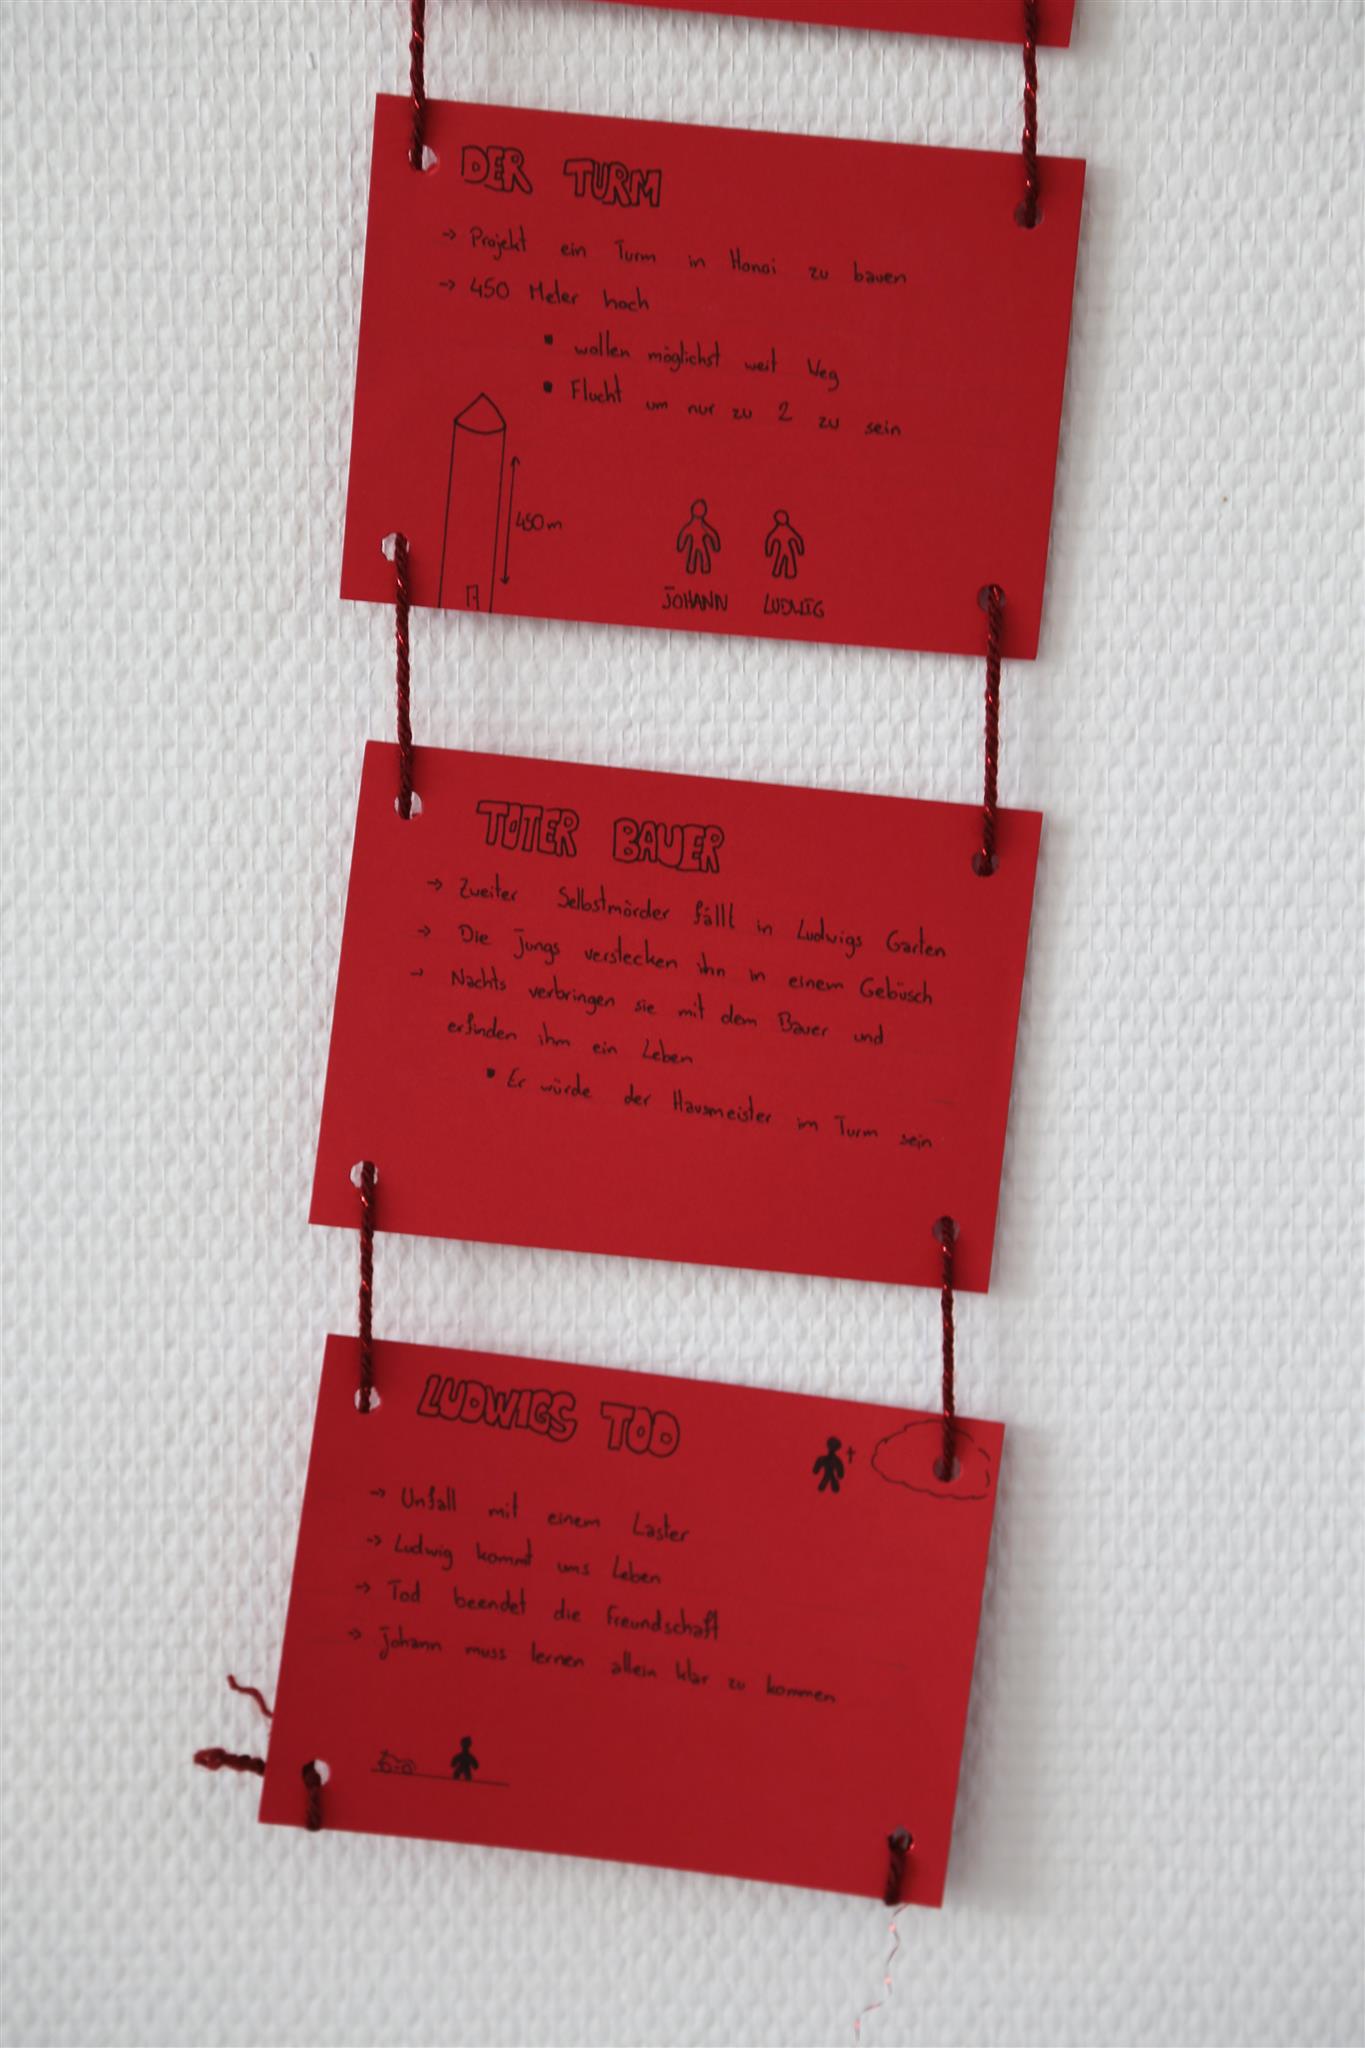 DER TURM
-> Projekt ein Turm in Hanoi zu bauen
-> 450 Meter hoch
▪ wollen möglichst weit Weg
▪ Flucht um nur zu 2 zu sein
450m
JOHANN LUDWIG
TOTER BAUER
-> Zweiter Selbstmörder fällt in Ludwigs Garten
-> Die Jungs verstecken ihn in einem Gebüsch
-> Nachts verbringen sie mit dem Bauer und
erfinden ihm ein Leben
▪ Er würde der Hausmeister im Turm sein
LUDWIGS TOD
-> Unfall mit einem Laster
-> Ludwig kommt ums Leben
-> Tod beendet die Freundschaft
-> Johann muss lernen allein klar zu kommen